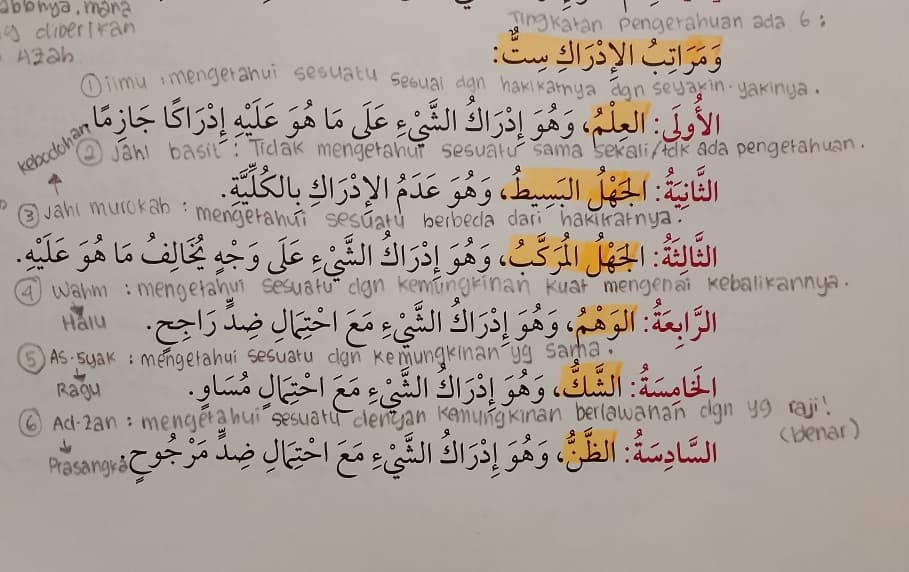 abbnya, mana
g diberikan
Azab
Tingkatan pengetahuan ada 6 :
وَمَرَاتِبُ الإِدْرَاكِ سِتٌّ:
① ilmu : mengetahui sesuatu sesuai dgn hakikatnya dgn seyakin-yakinya.
الأُولَى: العِلْمُ، وَهُوَ إِدْرَاكُ الشَّيْءِ عَلَى مَا هُوَ عَلَيْهِ إِدْرَاكًا جَازِمًا
kebodohan
② Jahl basit : Tidak mengetahui sesuatu sama sekali/tdk ada pengetahuan.
الثَّانِيَةُ: الجَهْلُ البَسِيطُ، وَهُوَ عَدَمُ الإِدْرَاكِ بِالكُلِّيَّةِ.
③ Jahl murokab : mengetahui sesuatu berbeda dari hakikatnya.
الثَّالِثَةُ: الجَهْلُ المُرَكَّبُ، وَهُوَ إِدْرَاكُ الشَّيْءِ عَلَى وَجْهٍ يُخَالِفُ مَا هُوَ عَلَيْهِ.
④ Wahm : mengetahui sesuatu dgn kemungkinan kuat mengenai kebalikannya.
Halu
الرَّابِعَةُ: الوَهْمُ، وَهُوَ إِدْرَاكُ الشَّيْءِ مَعَ احْتِمَالِ ضِدٍّ رَاجِحٍ.
⑤ As-syak : mengetahui sesuatu dgn kemungkinan yg sama.
Ragu
الخَامِسَةُ: الشَّكُّ، وَهُوَ إِدْرَاكُ الشَّيْءِ مَعَ احْتِمَالِ مُسَاوٍ.
⑥ Ad-zan : mengetahui sesuatu dengan kemungkinan berlawanan dgn yg raji!
(benar)
Prasangka
السَّادِسَةُ: الظَّنُّ، وَهُوَ إِدْرَاكُ الشَّيْءِ مَعَ احْتِمَالِ ضِدٍّ مَرْجُوحٍ